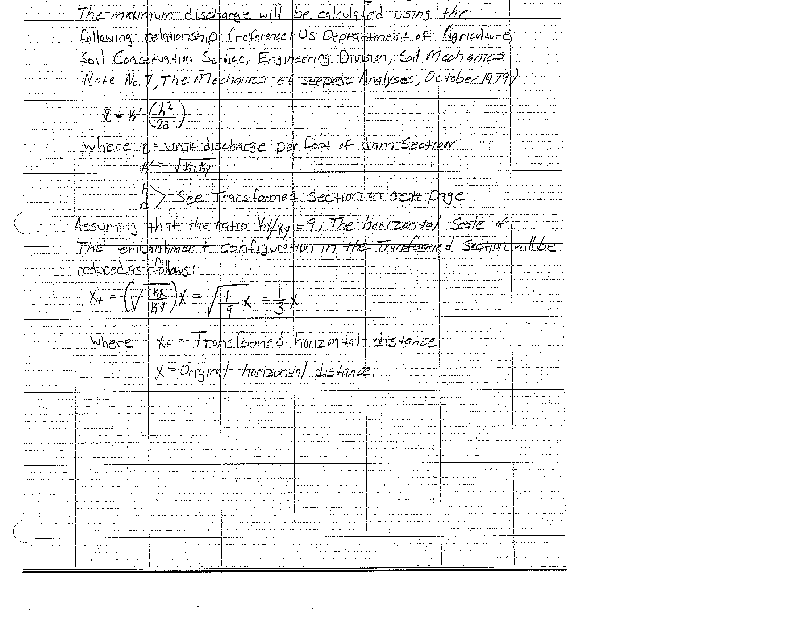 The maximum discharge will be calculated using the
following relationship (reference US Department of Agriculture
Soil Conservation Service, Engineering Division, Soil Mechanics
Note No. 7, The Mechanics of seepage Analyses, October 1979)
q = k' (h²/2a)
where q = unit discharge per foot of dam Section
k' = √kxky
h
a > See Transformed Section on next page
Assuming that the ratio kx/ky = 9, The horizontal Scale of
The embankment configuration in the Transformed Section will be
reduced as follows:
Xt = (√ky/kx) X = √1/9 X = 1/3 X
where Xt = Transformed horizontal distance
X = Original horizontal distance